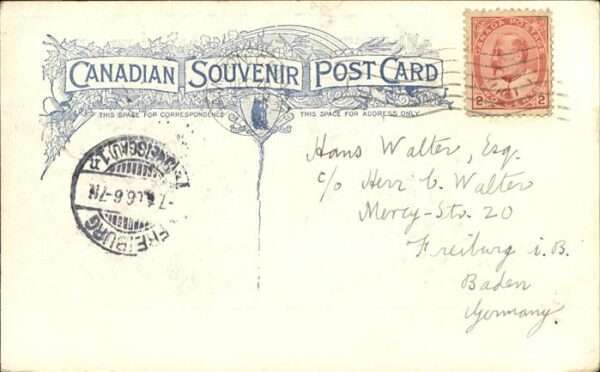 CANADIAN SOUVENIR POST CARD
THIS SPACE FOR CORRESPONDENCE
THIS SPACE FOR ADDRESS ONLY.
CANADA POSTAGE
2 2
Hans Walter, Esq.
c/o Herr C. Walter
Mercy-Str. 20
Freiburg i. B.
Baden
Germany.
FREIBURG
6-7N